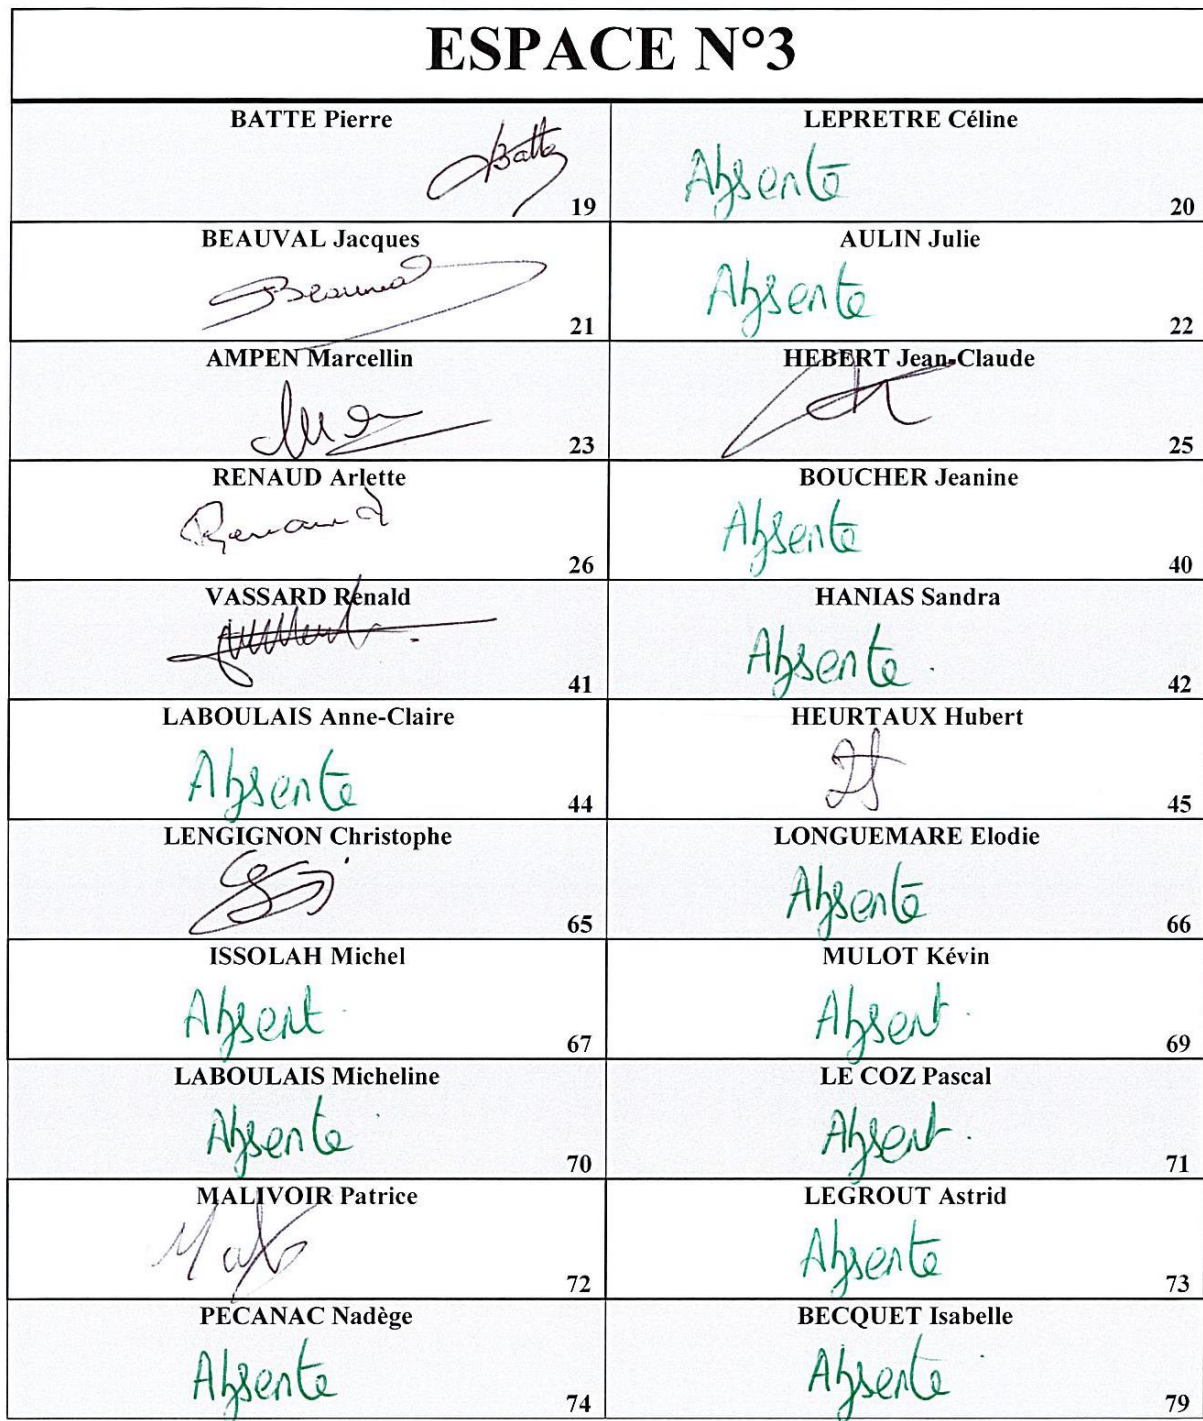 ESPACE N°3
BATTE Pierre
Batte
19
LEPRETRE Céline
Absente
20
BEAUVAL Jacques
Beauval
21
AULIN Julie
Absente
22
AMPEN Marcellin
23
HEBERT Jean-Claude
25
RENAUD Arlette
Renaud
26
BOUCHER Jeanine
Absente
40
VASSARD Renald
41
HANIAS Sandra
Absente.
42
LABOULAIS Anne-Claire
Absente
44
HEURTAUX Hubert
45
LENGIGNON Christophe
65
LONGUEMARE Elodie
Absente
66
ISSOLAH Michel
Absent.
67
MULOT Kévin
Absent.
69
LABOULAIS Micheline
Absente.
70
LE COZ Pascal
Absent.
71
MALIVOIR Patrice
72
LEGROUT Astrid
Absente
73
PECANAC Nadège
Absente
74
BECQUET Isabelle
Absente
79